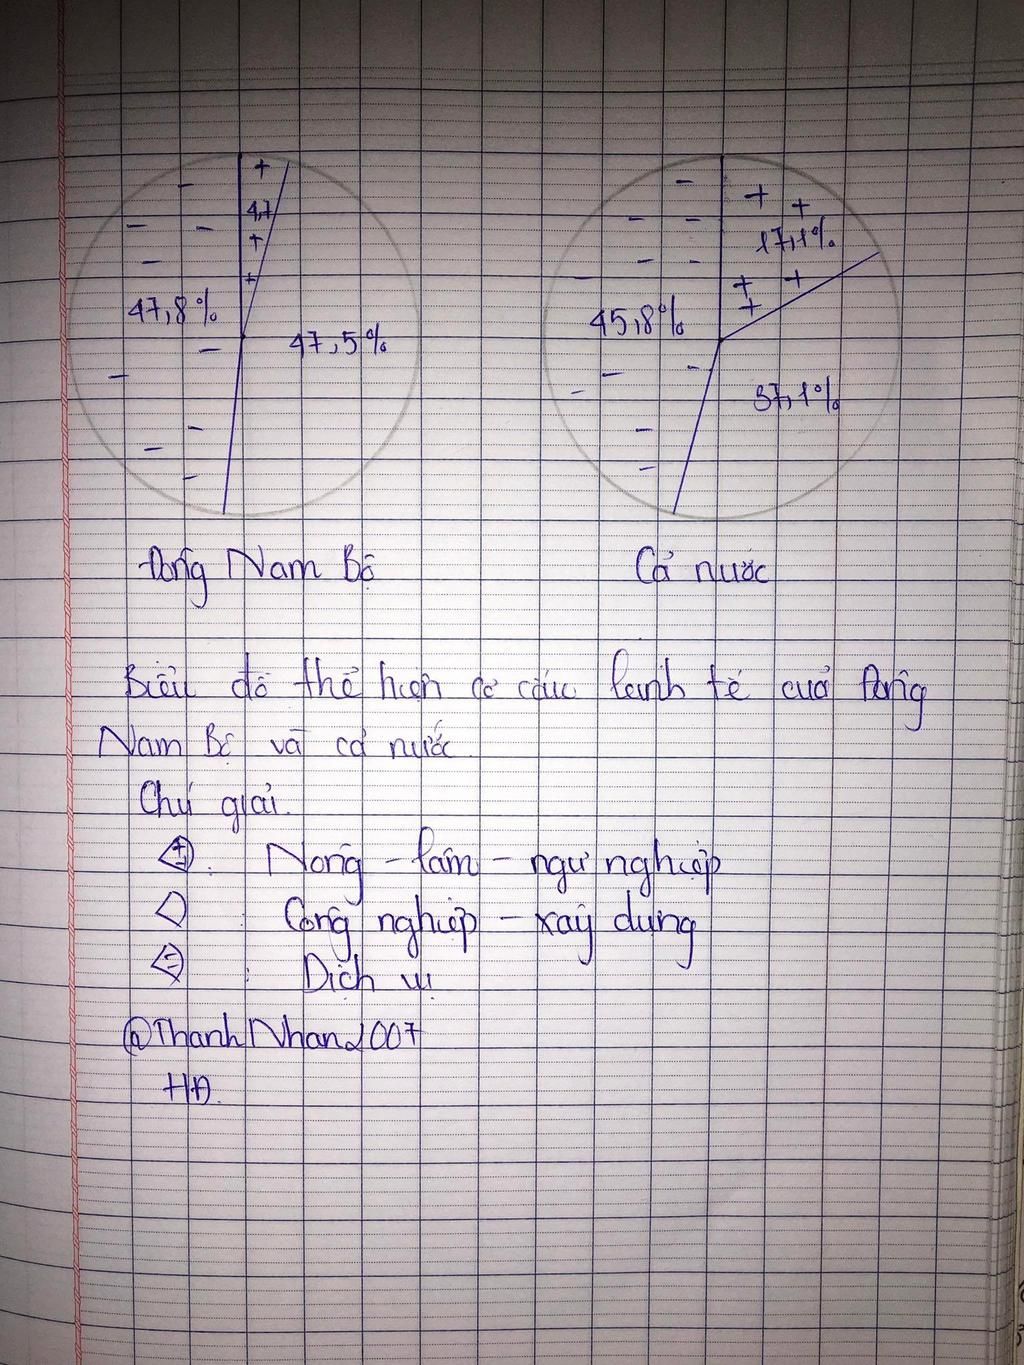 4,7
47,8%
47,5%
17,1%
45,8%
37,1%
Đông Nam Bộ
Cả nước
Biểu đồ thể hiện cơ cấu kinh tế của Đông
Nam Bộ và cả nước
Chú giải.
+ : Nông - lâm - ngư nghiệp
: Công nghiệp - xây dựng
- : Dịch vụ
@ThanhNhan2007
HĐ.